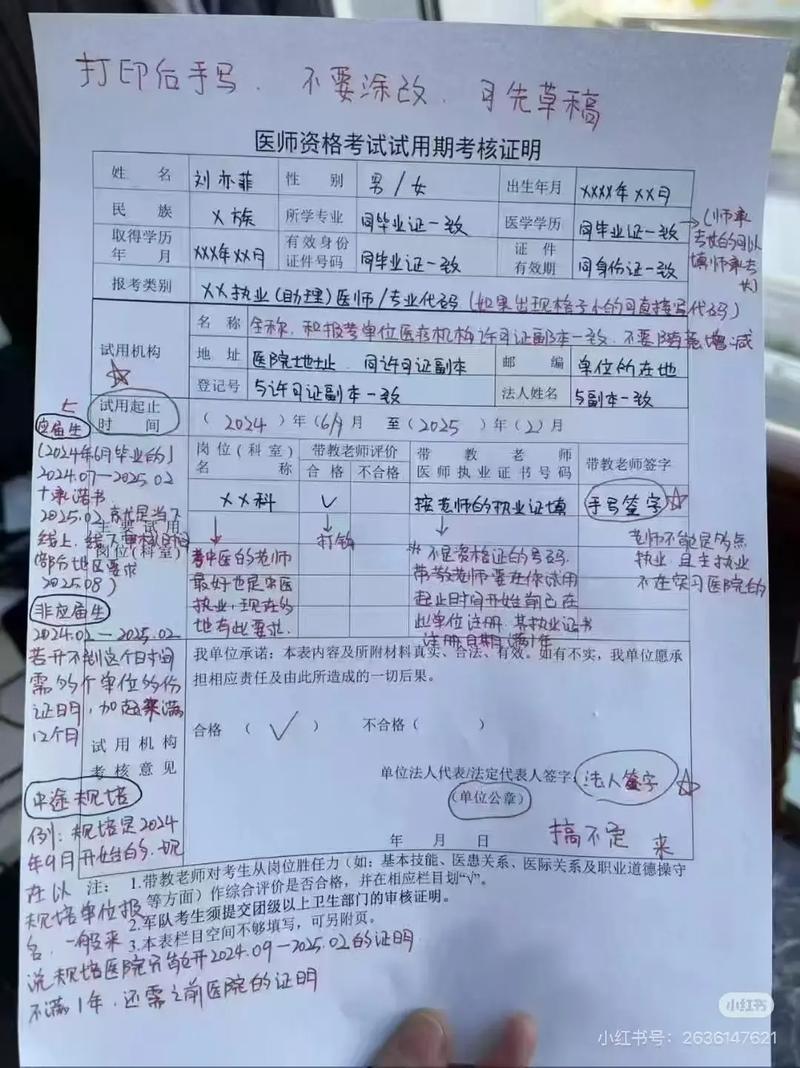 打印后手写、不要涂改、可先草稿
医师资格考试试用期考核证明
姓 名 刘亦菲 性 别 男/女 出生年月 XXXX年XX月
民 族 X族 所学专业 同毕业证一致 医学学历 同毕业证一致
(师承
考女的可以
填师承专
长)
取得学历
年 月 XXX年XX月 有效身份
证件号码 同毕业证一致 证 件
有效期 同身份证一致
报考类别 XX执业(助理)医师/专业代码(如果出现格子小的可直接写代码)
试用机构
名 称 全称,和报考单位医疗机构许可证副本一致,不要随意增减
地 址 医院地址,同许可证副本 邮 编 单位所在地
登记号 与许可证副本一致 法人姓名 与副本一致
试用起止
时 间
( 2024 )年(6/9)月 至(2025 )年(2)月
岗位(科室)
名 称
带教老师评价
合 格 不合格
带 教 老 师
医师执业证书号码
带教老师签字
XX科 √ 按老师的执业证填 手写签字
打钩
考中医的老师
最好也是中医
执业,现在的
地有此要求.
不是资格证的号码.
带教老师要在你试用
起止时间开始前已在
此单位注册,其执业证书
注册日期满1年
老师不能是多点
执业,且主执业
不在实习医院的
应届生
(2024年6月毕业的)
2024.07—2025.02
+承诺书
2025.02
岗位(科室)
(部分地区要求
2025.08)
非应届生
2024.02—2025.02
若开不到这个时间
需多个单位多份
证明,加起来满
12个月
我单位承诺:本表内容及所附材料真实、合法、有效。如有不实,我单位愿承
担相应责任及由此所造成的一切后果。
合格 ( √ ) 不合格( )
试用机构
考核意见
单位法人代表/法定代表人签字: 法人签字
(单位公章)
年 月 日
搞不定 来
中途规培
例:规培是2024
年9月开始的,现
在以
规培单位报
名,一般来
说规培医院只能开2024.09—2025.02的证明
不满1年,还需之前医院的证明
注: 1.带教老师对考生从岗位胜任力(如:基本技能、医患关系、医际关系及职业道德操守
等方面)作综合评价是否合格,并在相应栏目划“√”。
2.军队考生须提交团级以上卫生部门的审核证明。
3.本表栏目空间不够填写,可另附页。
小红书
小红书号:2636147621